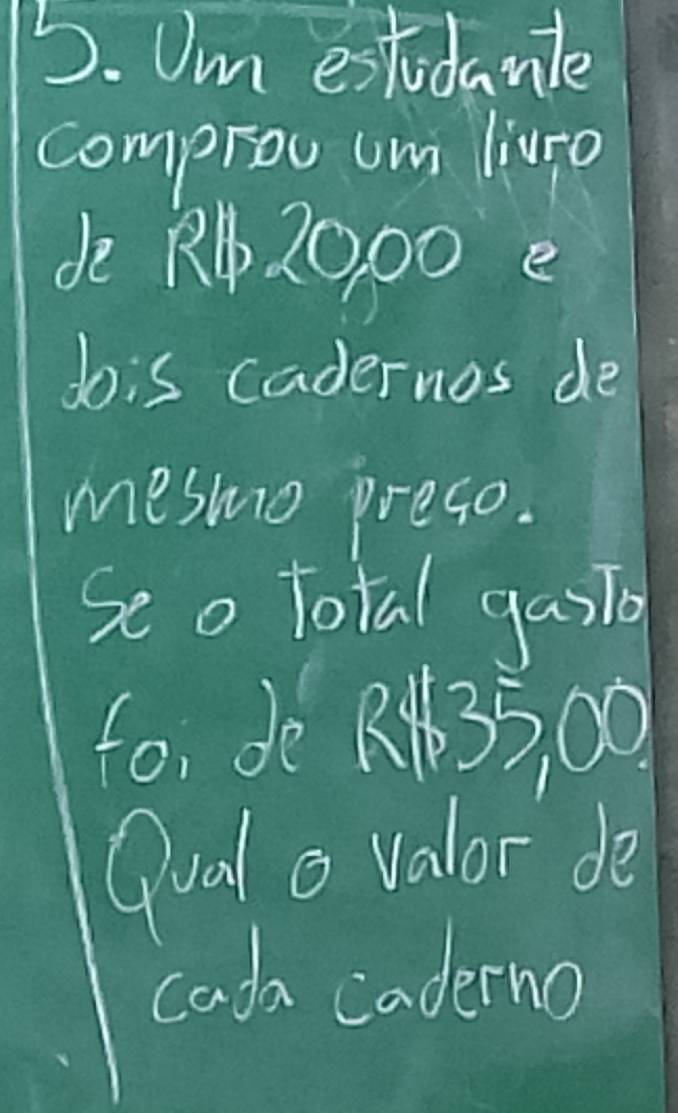 5. Um estudante
comprou um livro
de R$ 20,00 e
dois cadernos de
mesmo preço.
Se o total gasto
foi de R$35,00.
Qual o valor de
cada caderno